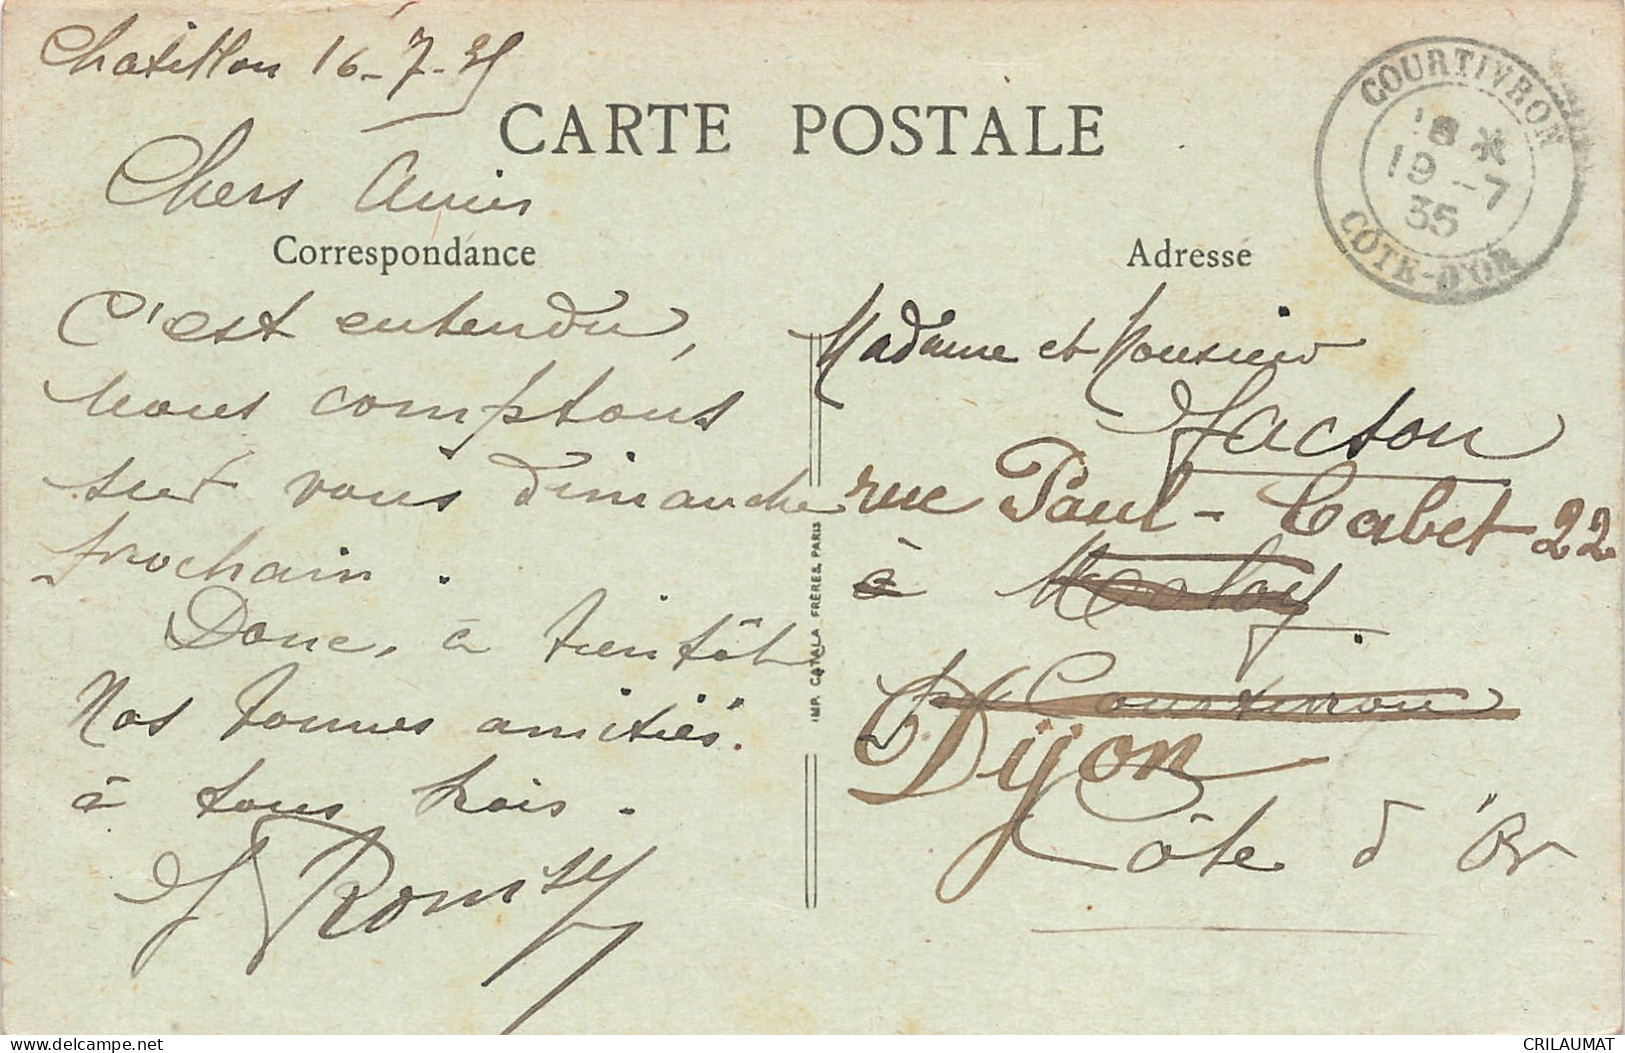 Chatillon 16-7-35
CARTE POSTALE
COURTIVRON
18 *
19 - 7
35
CÔTE-D'OR
Chers Amis
Correspondance
C'est entendu,
nous comptons
sur vous dimanche
prochain.
Donc, à bientôt
Nos bonnes amitiés
à tous trois.
IMP. CATALA FRÈRES, PARIS
Adresse
Madame et Monsieur
Jacton
rue Paul-Cabet 22
à Moloy
Courtivron
Dijon
Côte d'Or
CRILAUMAT